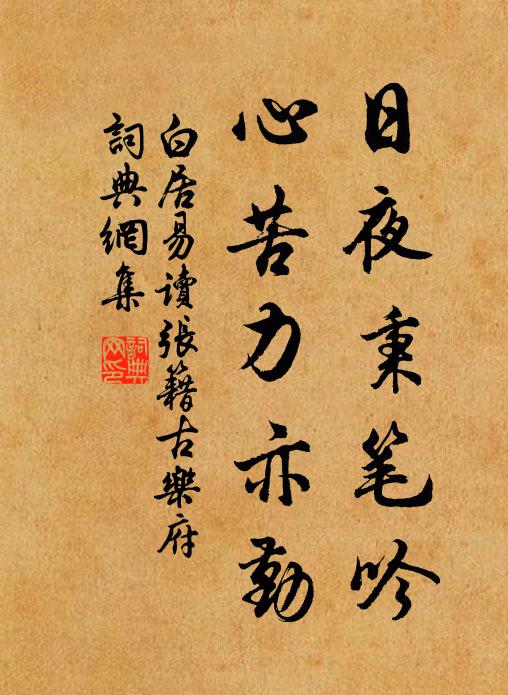 日夜秉笔吟
心苦力亦勤
白居易讀張籍古樂府
詞典網集
詞典
网印